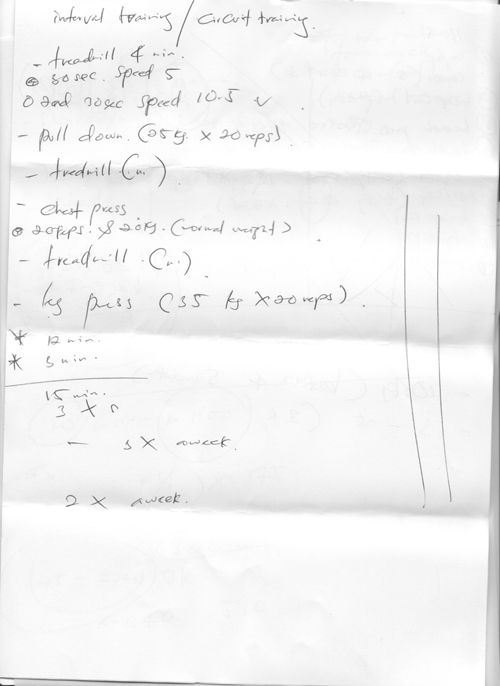 interval training / circuit training.
- treadmill 4 min.
30 sec. speed 5
2nd 30sec speed 10.5
- pull down. (25 kg. X 20 reps)
- tredmill (
- chest press
20reps. 20kg. (normal weight)
- treadmill. (
- leg press (35 kg X 20 reps).
* 12 min.
* 3 min.
15 min.
3 X
- 3 X aweek.
2 X aweek.